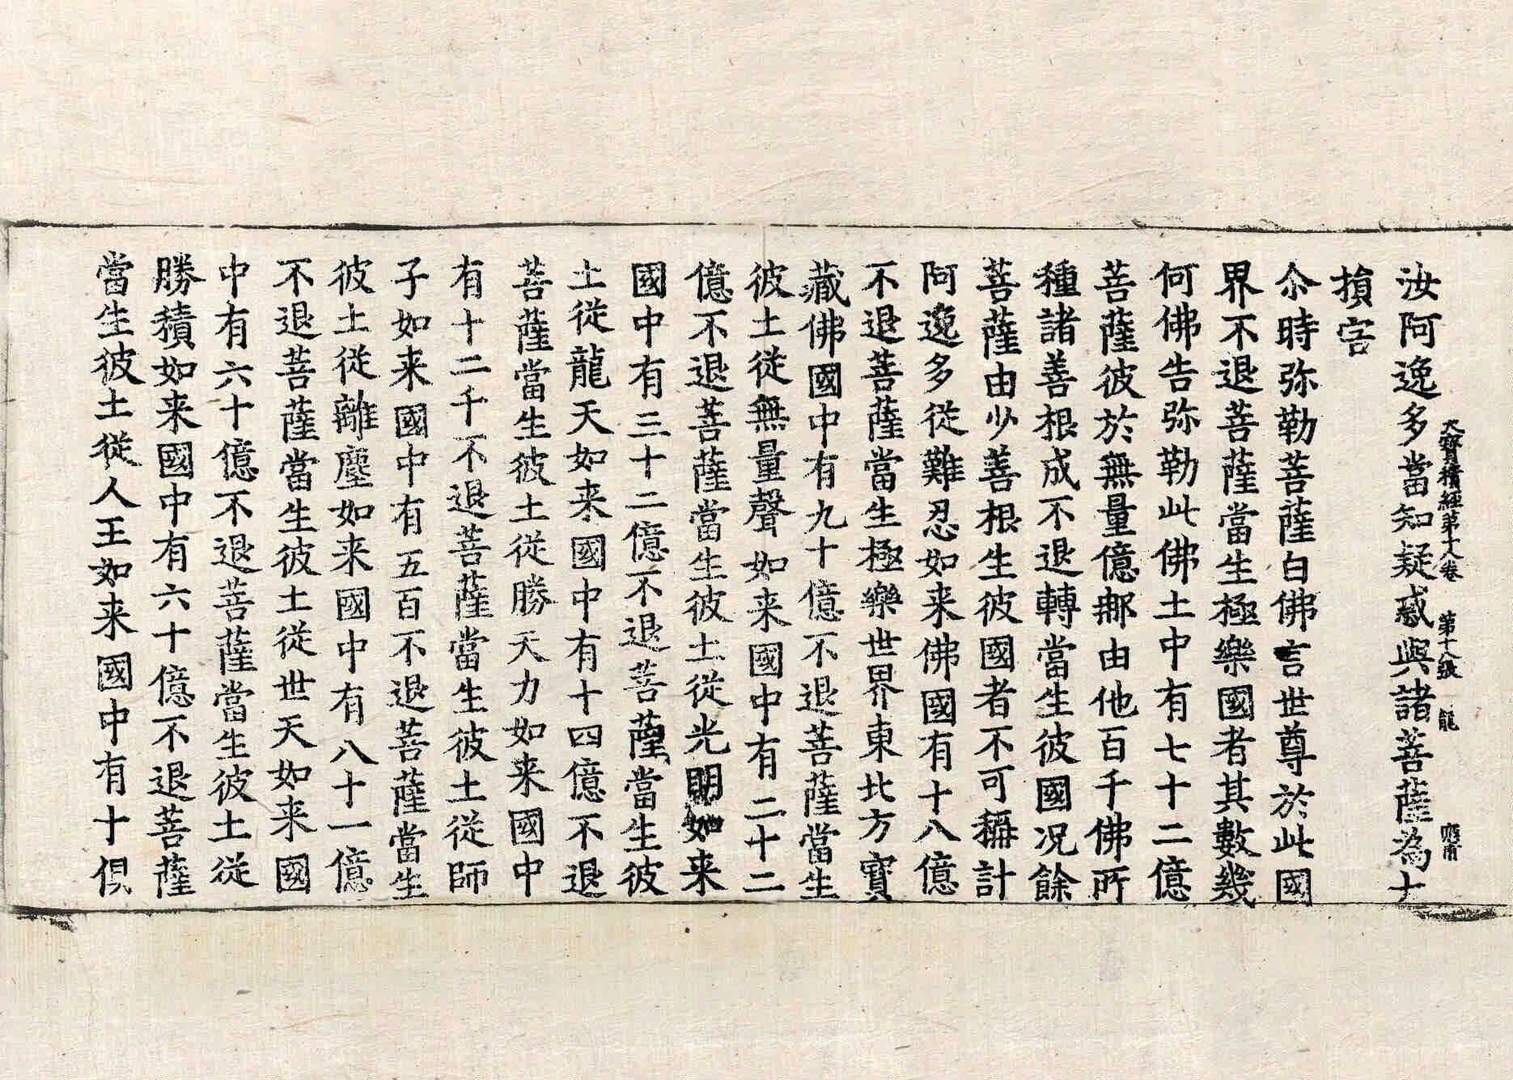 汝阿逸多當知疑惑與諸菩薩為大
損害
大寶積經第十八卷 第十八張 龍
尒時弥勒菩薩白佛言世尊於此國
界不退菩薩當生極樂國者其數幾
何佛告弥勒此佛土中有七十二億
菩薩彼於無量億那由他百千佛所
種諸善根成不退轉當生彼國況餘
菩薩由少善根生彼國者不可稱計
阿逸多從難忍如来佛國有十八億
不退菩薩當生極樂世界東北方寶
藏佛國中有九十億不退菩薩當生
彼土從無量聲如来國中有二十二
億不退菩薩當生彼土從光明如来
國中有三十二億不退菩薩當生彼
土從龍天如来國中有十四億不退
菩薩當生彼土從勝天力如来國中
有十二千不退菩薩當生彼土從師
子如来國中有五百不退菩薩當生
彼土從離塵如来國中有八十一億
不退菩薩當生彼土從世天如来國
中有六十億不退菩薩當生彼土從
勝積如来國中有六十億不退菩薩
當生彼土從人王如来國中有十俱